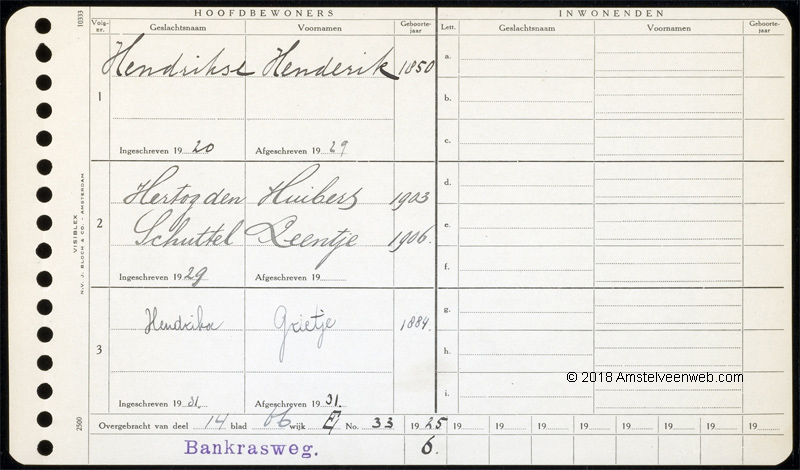 HOOFDBEWONERS
INWONENDEN
10333
Volg-nr. Geslachtsnaam Voornamen Geboorte-jaar Lett. Geslachtsnaam Voornamen Geboorte-jaar
1 Hendrikse Henderik 1850
a.
b.
c.
Ingeschreven 1920 Afgeschreven 1929
2 Hertog den Huibers 1903
Schuttel Leentje 1906.
d.
e.
f.
Ingeschreven 1929 Afgeschreven 19
VISIBLEX
N.V. J. BLOCH & CO. - AMSTERDAM
3 Hendrikse Grietje 1884.
g.
h.
i.
© 2018 Amstelveenweb.com
Ingeschreven 1931. Afgeschreven 1931.
2500
Overgebracht van deel 14 blad 66 wijk E No. 33 1925 19 19 19 19 19 19 19 19
Bankrasweg. 6.